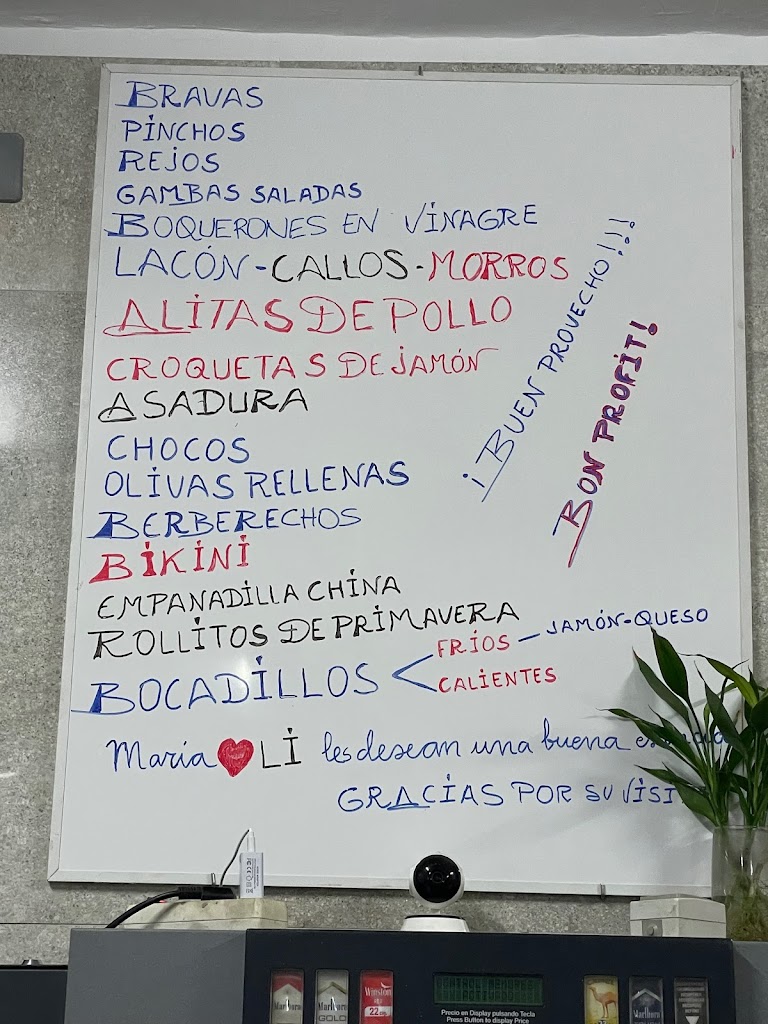 BRAVAS
PINCHOS
REJOS
GAMBAS SALADAS
BOQUERONES EN VINAGRE
LACÓN - CALLOS - MORROS
ALITAS DE POLLO
CROQUETAS DE JAMÓN
ASADURA
CHOCOS
OLIVAS RELLENAS
BERBERECHOS
BIKINI
EMPANADILLA CHINA
ROLLITOS DE PRIMAVERA
BOCADILLOS < FRÍOS - JAMÓN-QUESO
CALIENTES
¡BUEN PROVECHO!!!
BON PROFIT!
María ❤ LI les desean una buena
GRACIAS POR SU
Marlboro
Marlboro
GOLD
Winston
22
Precio en Display pulsando Tecla
Press Button to display Price
Marlboro